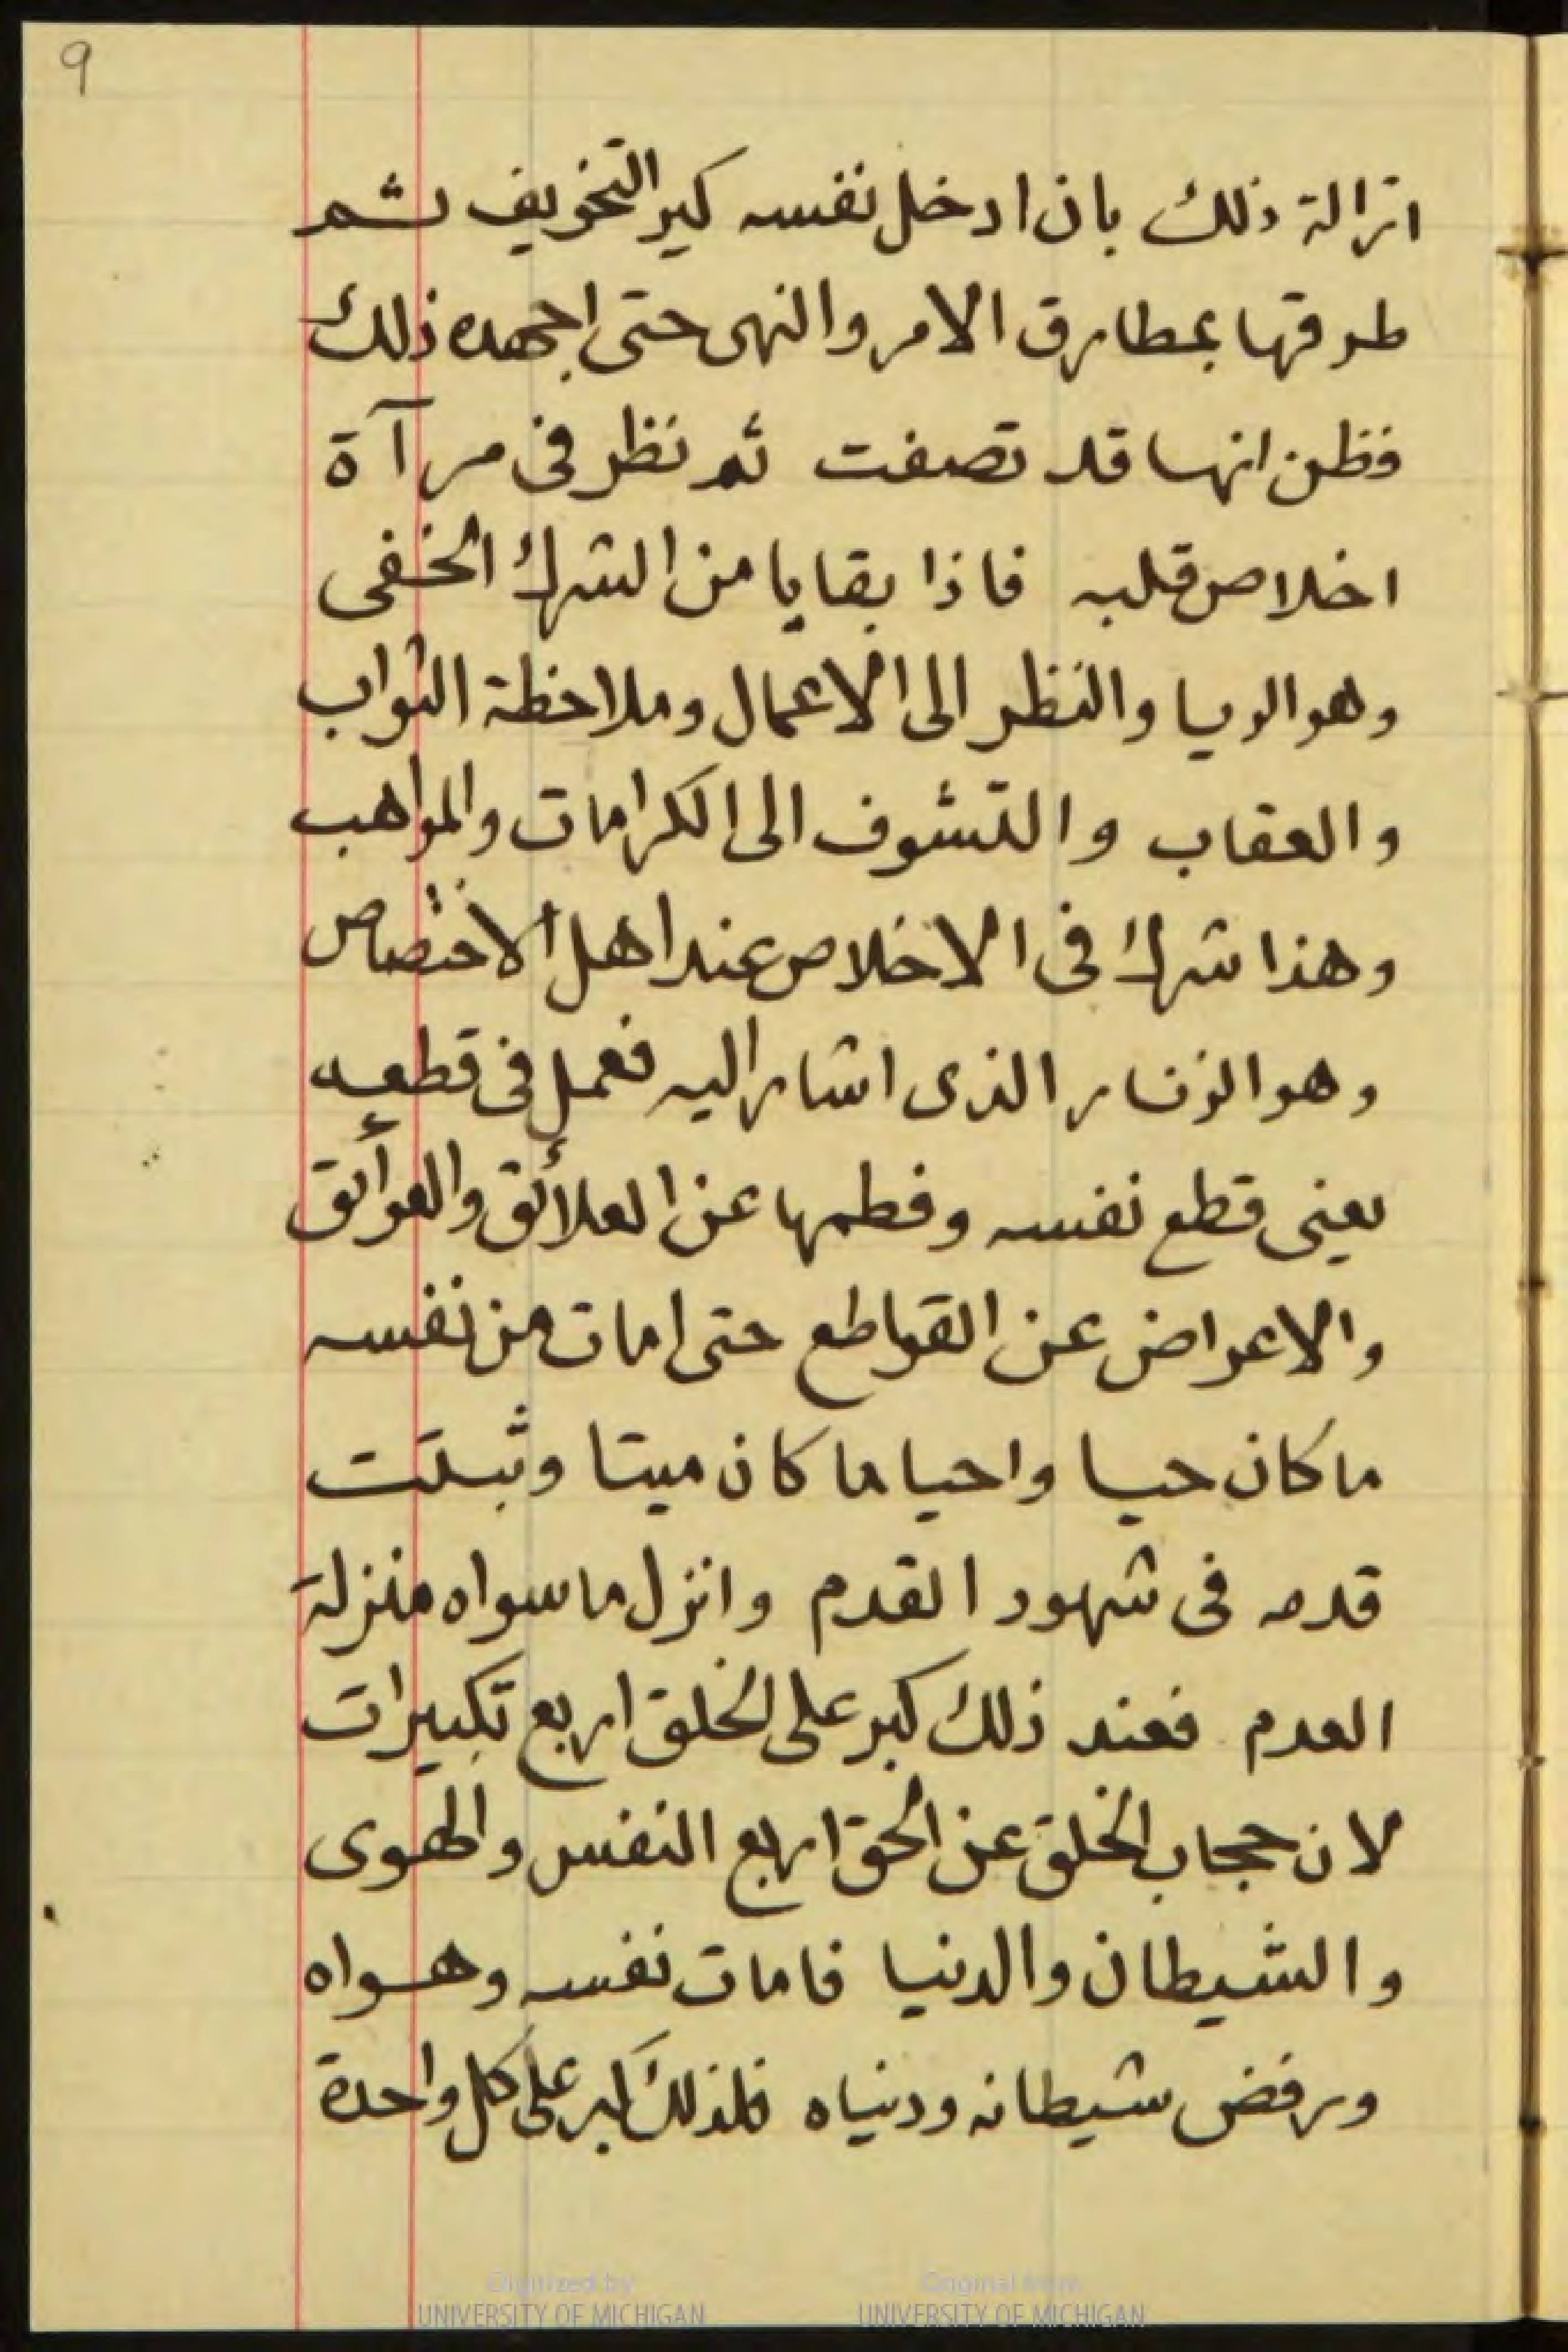 ٩
ازالة ذلك بان ادخل نفسه كير التخويف ثم
طرقها بمطارق الامر والنهى حتى اجهده ذلك
فظن انها قد تصفت ثم نظر فى مرآة
اخلاص قلبه فاذا بقايا من الشرك الخفى
وهو الريا والنظر الى الاعمال وملاحظة الثواب
والعقاب والتشوف الى الكرامات والمواهب
وهذا شرك فى الاخلاص عند اهل الاختصاص
وهو الزنار الذى اشار اليه فعمل فى قطعه
يعنى قطع نفسه وفطمها عن العلائق والعوائق
والاعراض عن القواطع حتى امات من نفسه
ما كان حيا واحيا ما كان ميتا وثبتت
قدمه فى شهود القدم وانزل ما سواه منزلة
العدم فعند ذلك كبر على الخلق اربع تكبيرات
لان حجاب الخلق عن الحق اربع النفس والهوى
والشيطان والدنيا فامات نفسه وهواه
ورفض شيطانه ودنياه فلذلك كبر على كل واحدة
Digitized by
UNIVERSITY OF MICHIGAN
Original from
UNIVERSITY OF MICHIGAN